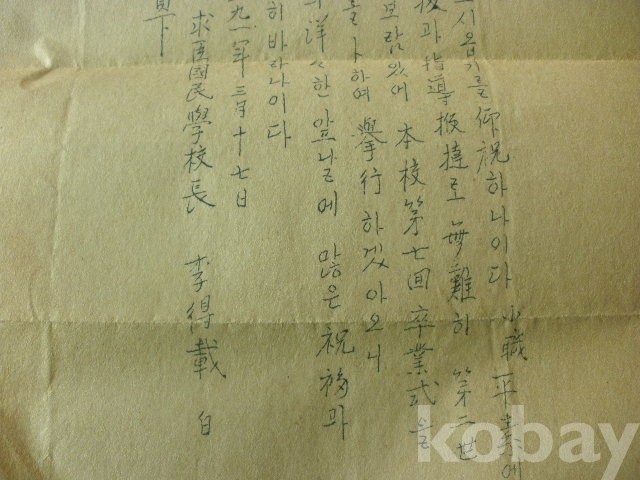 시옵기를 仰祝하나이다 小職 平素에
과 指導 鞭撻로 無難히 第二世
보람있에 本校 第七回 卒業式을
하여 擧行하겠아오니
洋洋한 앞날에 많은 祝福과
히 바라나이다
九一年 三月 十七日
求臣國民學校長 李得載 白
貝下
kobay